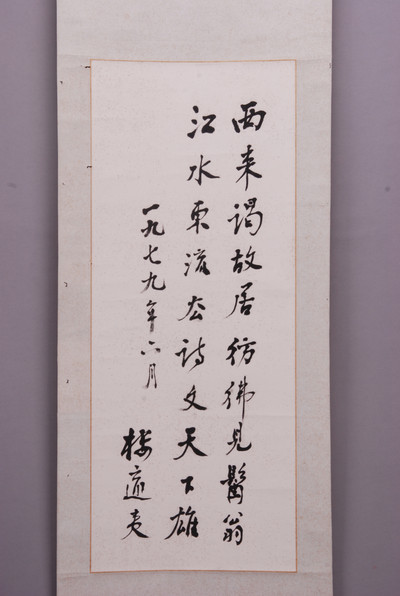 西来谒故居彷彿見髯翁
江水東流去诗文天下雄
一九七九年六月
楼適夷